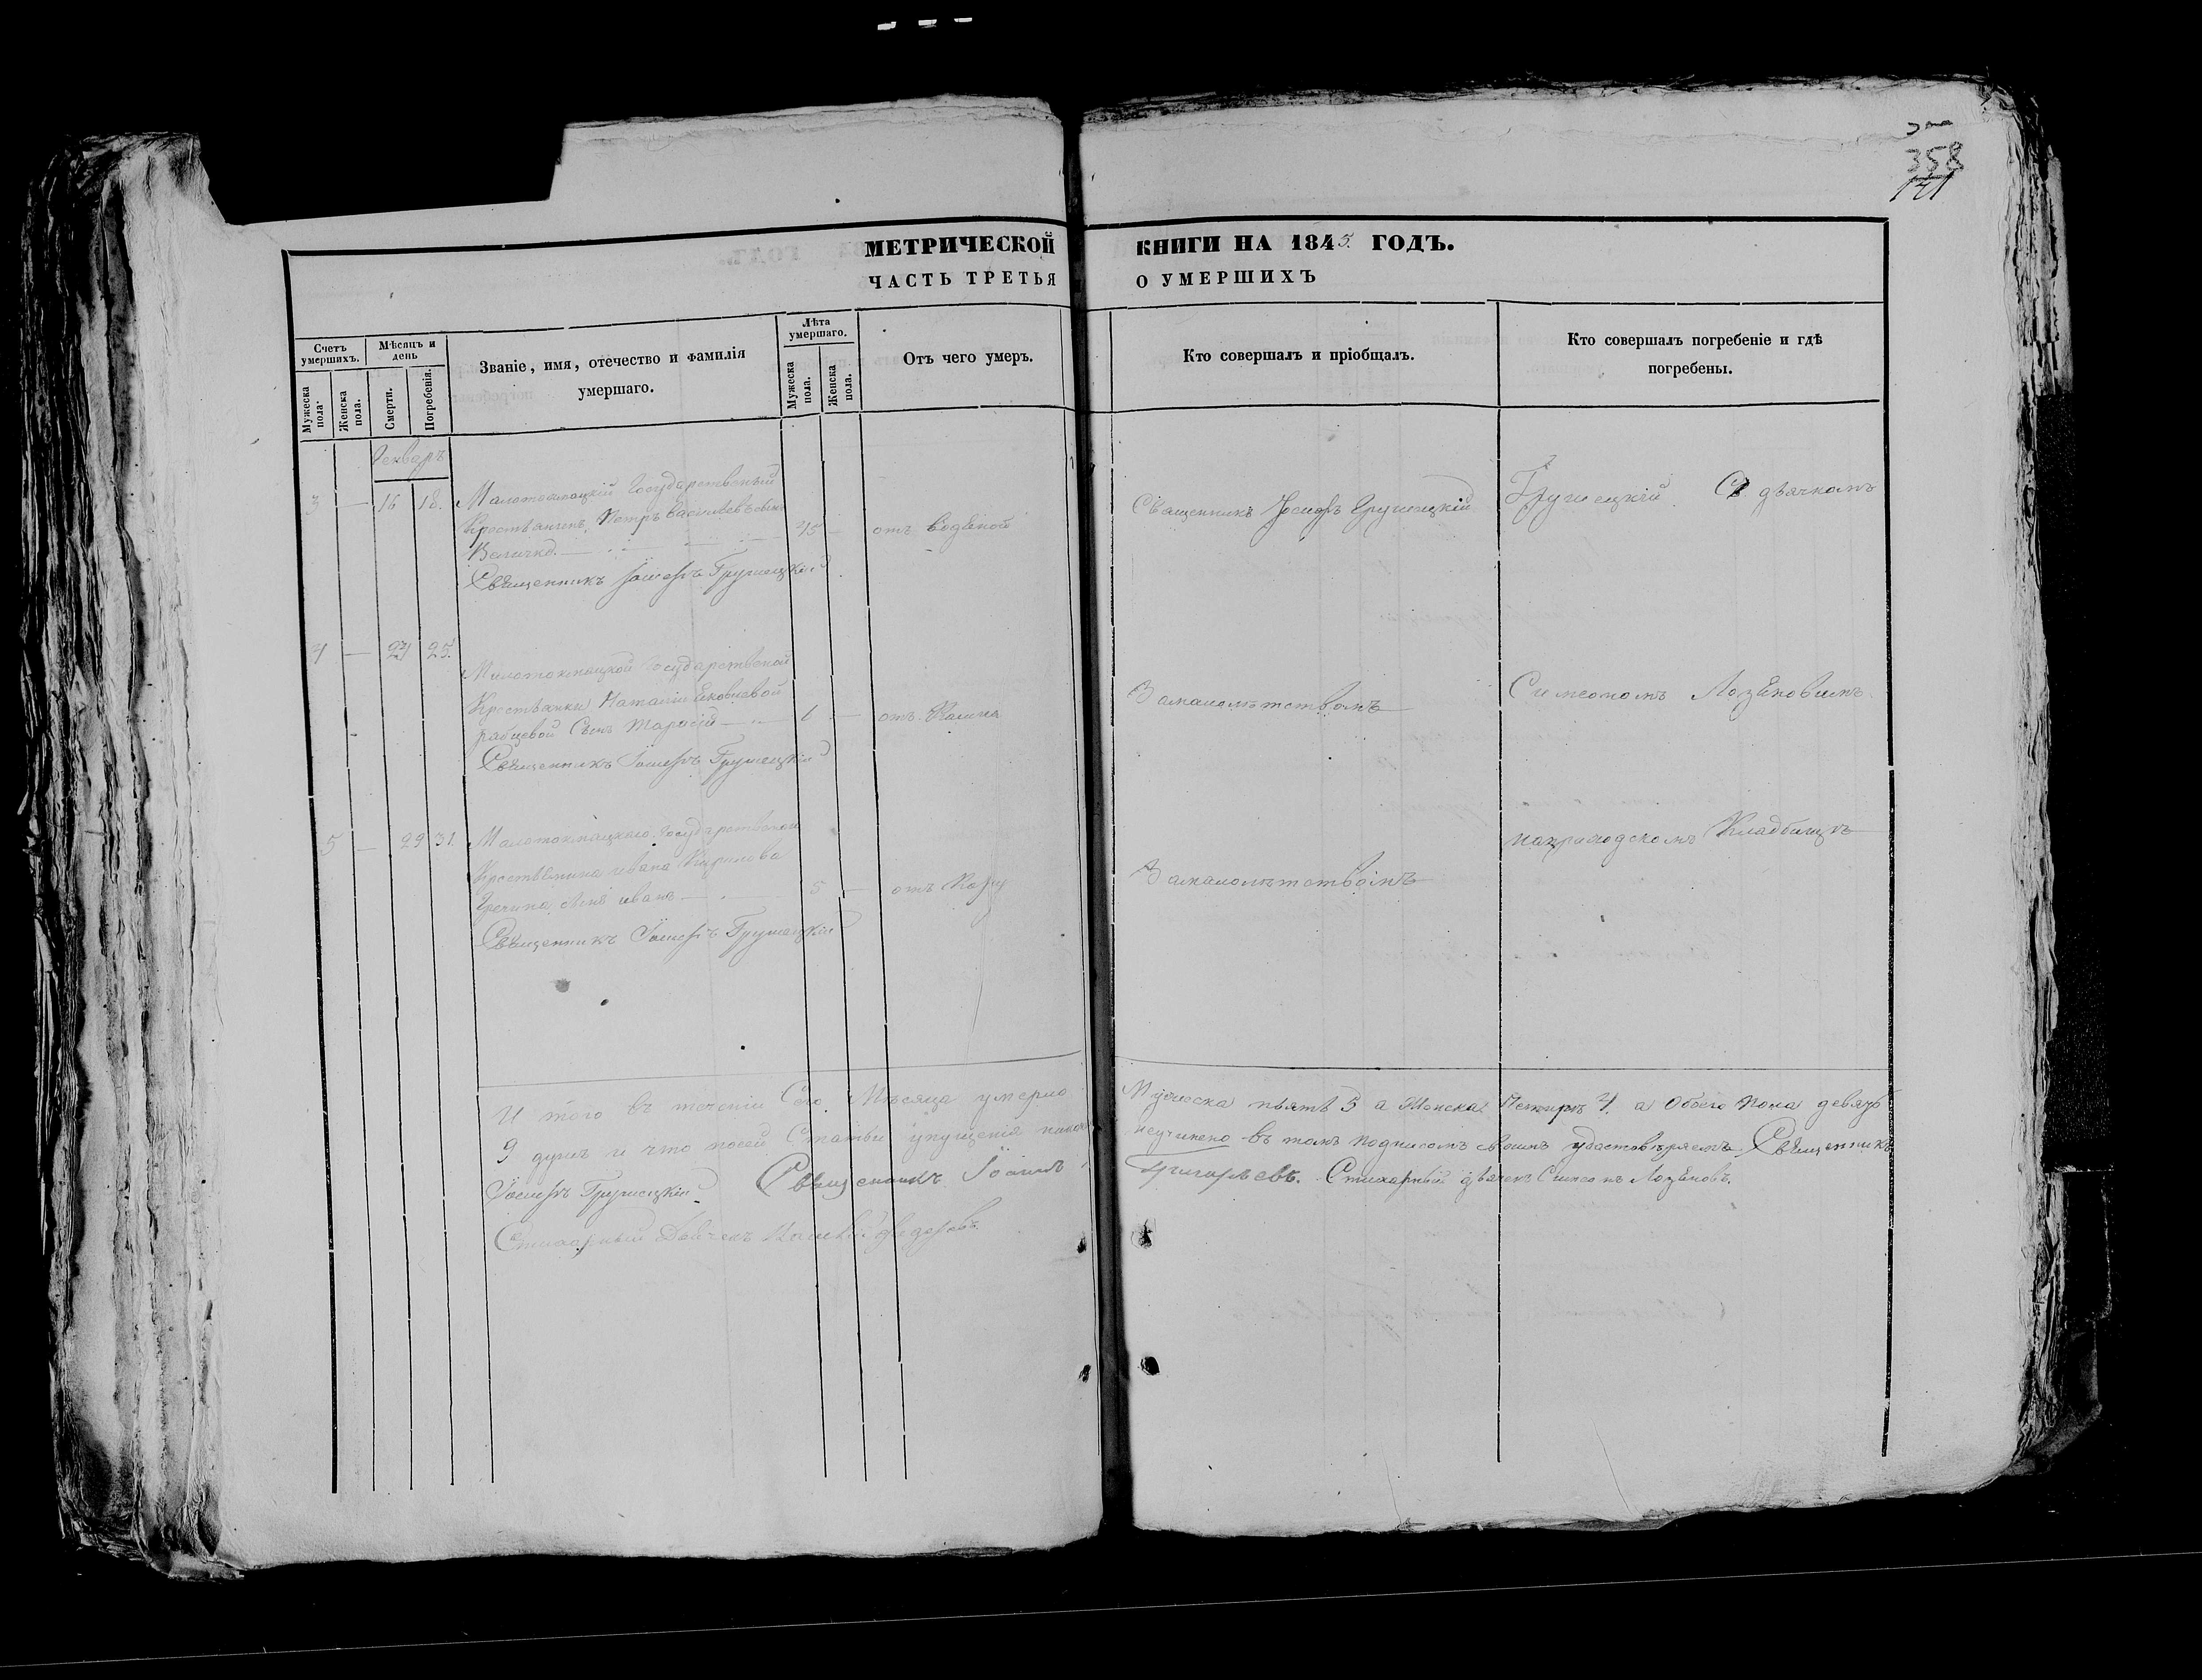 358
171
МЕТРИЧЕСКОЙ КНИГИ НА 1845. ГОДЪ.
ЧАСТЬ ТРЕТЬЯ О УМЕРШИХЪ
Счетъ умершихъ.
Мужеска пола.
Женска пола.
Мѣсяцъ и день
Смерти.
Погребенія.
Званіе, имя, отечество и фамилія
умершаго.
Лѣта умершаго.
Мужеска пола.
Женска пола.
Отъ чего умеръ.
Кто совершалъ и пріобщалъ.
Кто совершалъ погребеніе и гдѣ
погребены.
Генваръ
3 — 16 18. Малотокмацкій Государственый
Крестьянинъ, Петръ Васильевъ сынъ
Величко 45 — отъ водяной
Священникъ Іосифъ Грушецкій
Священникъ Іосифъ Грушецкій
Грушецкій Съ дьячкомъ
4 — 24 25. Малотокмацкой Государственой
Крестьянки Наталіи Яковлевой
сынъ Тарасій — 1 — отъ Кашля
Священникъ Іосифъ Грушецкій
Замалолѣтствомъ
Симеономъ Лозѣновимъ
5 — 29 31. Малотокмацкаго Государственого
Крестьянина Ивана Кирилова
сынъ Иванъ — 5 — отъ Кору
Священникъ Іосифъ Грушецкій
Замалолѣтствомъ
наприходскомъ Кладбищѣ
И того въ теченіи Сего Мѣсяца умерло Мужеска пять 5 а Женска Четыри 4. а Обоего Пола девять
9 душъ и что посей Статьи упущенія никакого неучинено въ томъ подписомъ своимъ удостовѣряемъ Священникъ
Іосифъ Грушецкій Священникъ Іоаннъ Григорьевъ. Стихарный дьячекъ Симеонъ Лозѣновъ.
Стихарный Дьячекъ Федоровъ